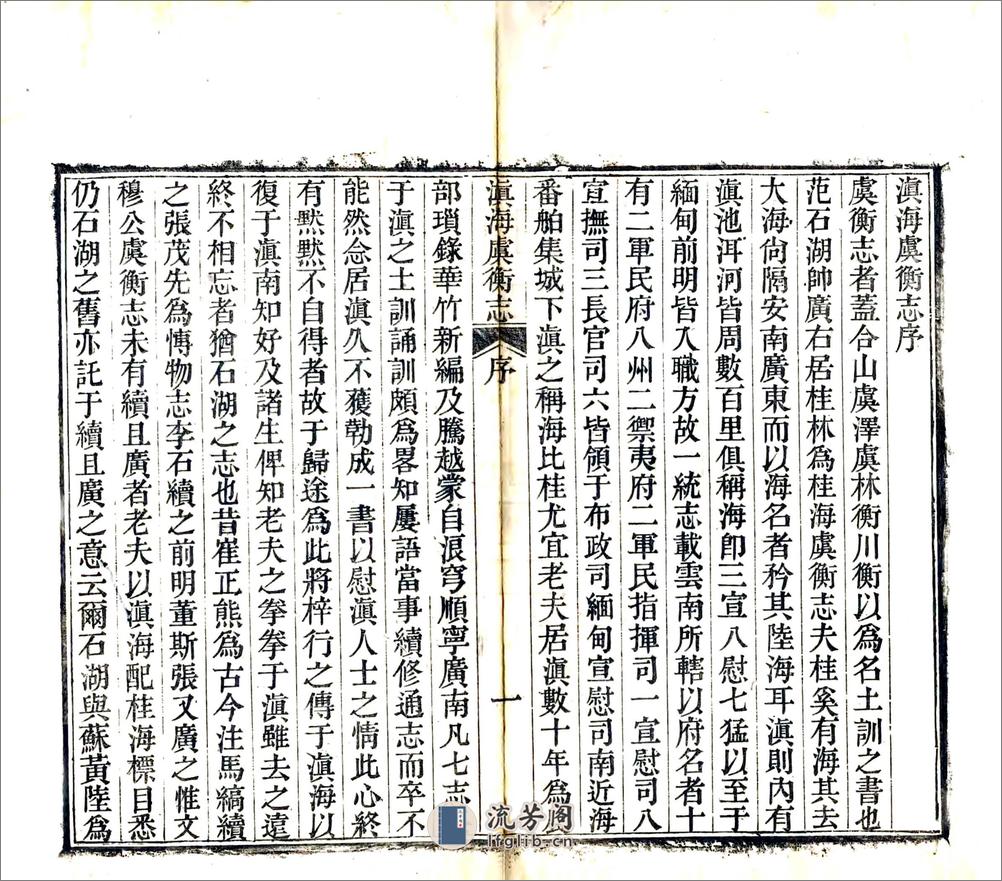 滇海虞衡志序
虞衡志者蓋合山虞澤虞林衡川衡以爲名土訓之書也
范石湖帥廣右居桂林爲桂海虞衡志夫桂奚有海其去
大海尙隔安南廣東而以海名者矜其陸海耳滇則內有
滇池洱河皆周數百里俱稱海卽三宣八慰七猛以至于
緬甸前明皆入職方故一統志載雲南所轄以府名者十
有二軍民府八州二禦夷府二軍民指揮司一宣慰司八
宣撫司三長官司六皆領于布政司緬甸宣慰司南近海
番舶集城下滇之稱海比桂尤宜老夫居滇數十年爲
滇海虞衡志 序 一
部瑣錄華竹新編及騰越蒙自浪穹順寧廣南凡七志
于滇之土訓誦訓頗爲畧知屢語當事續修通志而卒不
能然念居滇久不獲勒成一書以慰滇人士之情此心終
有黙黙不自得者故于歸途爲此將梓行之傳于滇海以
復于滇南知好及諸生俾知老夫之拳拳于滇雖去之遠
終不相忘者猶石湖之志也昔崔正熊爲古今注馬縞續
之張茂先爲博物志李石續之前明董斯張又廣之惟文
穆公虞衡志未有續且廣者老夫以滇海配桂海標目悉
仍石湖之舊亦託于續且廣之意云爾石湖與蘇黃陸爲
流芳阁
lfglib.cn